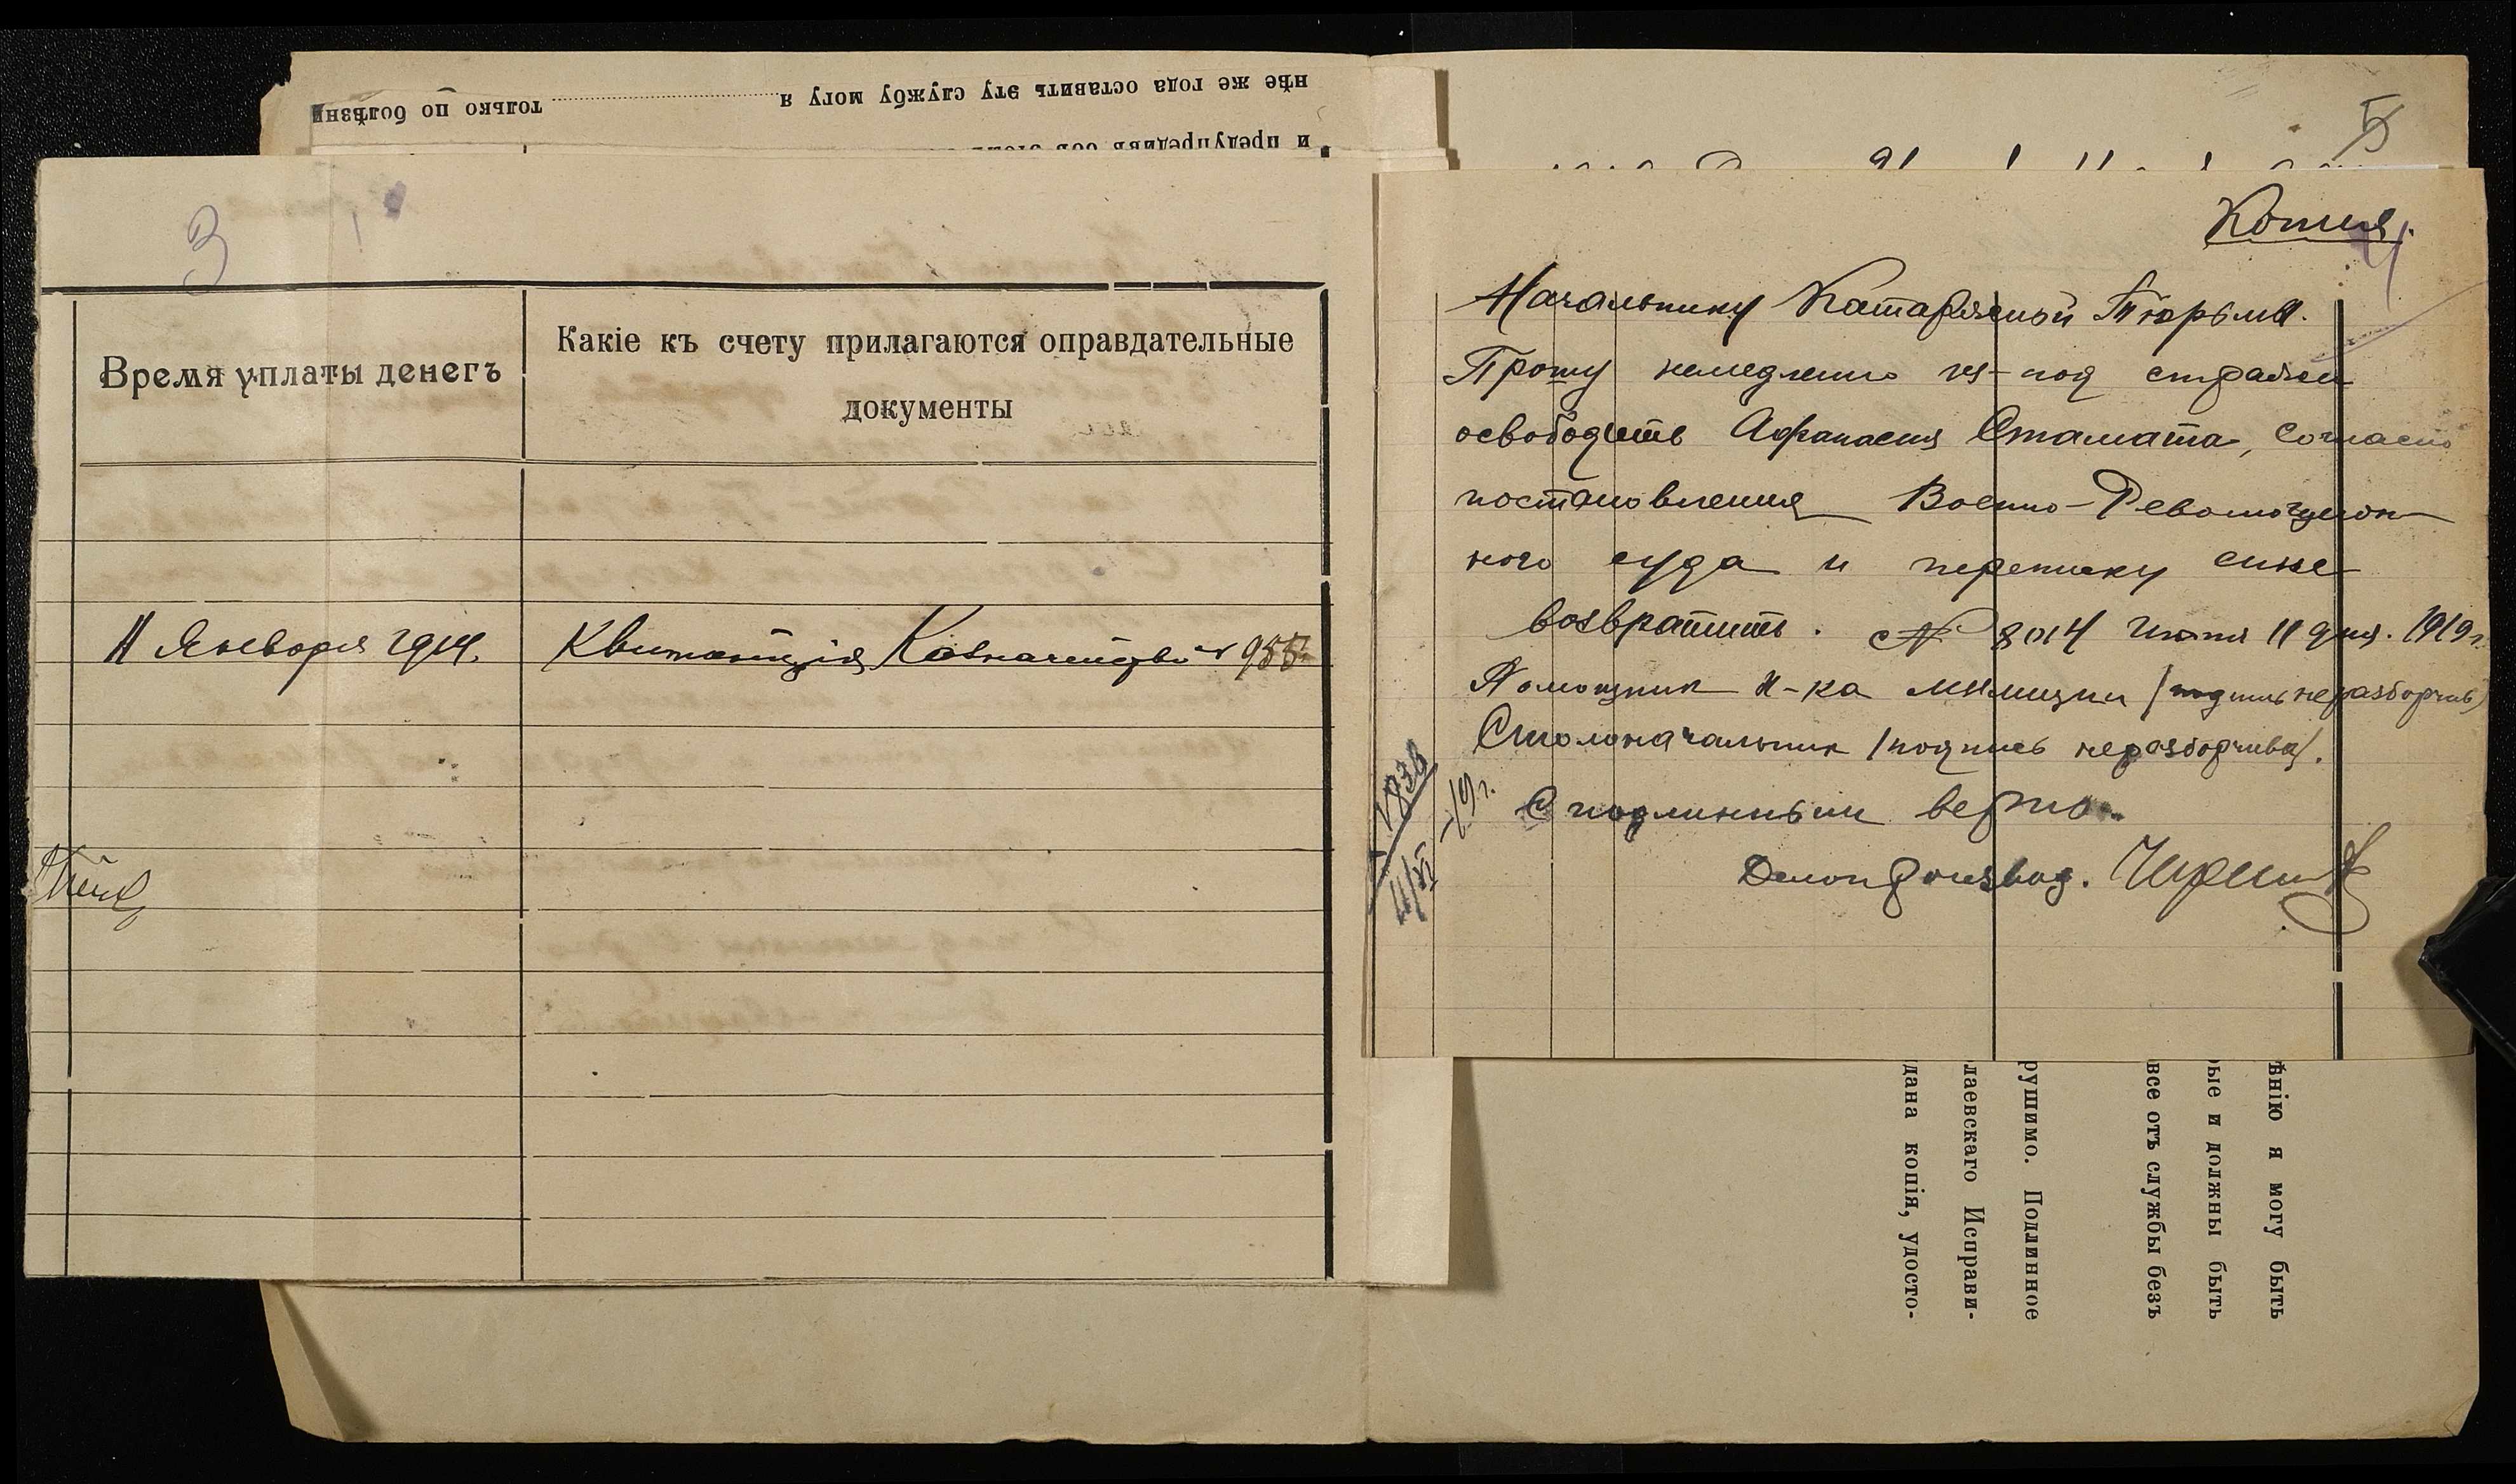 нѣе же года оставить эту службу могу я
только по болѣзни
и предупредивъ
3
Время уплаты денегъ
Какіе къ счету прилагаются оправдательные
документы
11 Января 1914.
Квитанція Казначейства № 955
5
Копия.
4
Начальнику Катаржной Тюрьмы.
Прошу немедленно из-под стражи
освободить Афанасия Стамата, согласно
постановления Военно-Революцион-
ного суда и переписку сию
возвратить. № 8014 Июня 11 дня. 1919 г.
Помощник Н-ка милиции /подпись неразборчив/
Столоначальник /подпись неразборчива/.
С подлинным верно.
Делопроизвод.
11/VI -19 г.
ѣнію я могу быть
рые и должны быть
все отъ службы безъ
рушимо. Подлинное
лаевскаго Исправи-
дана копія, удосто-